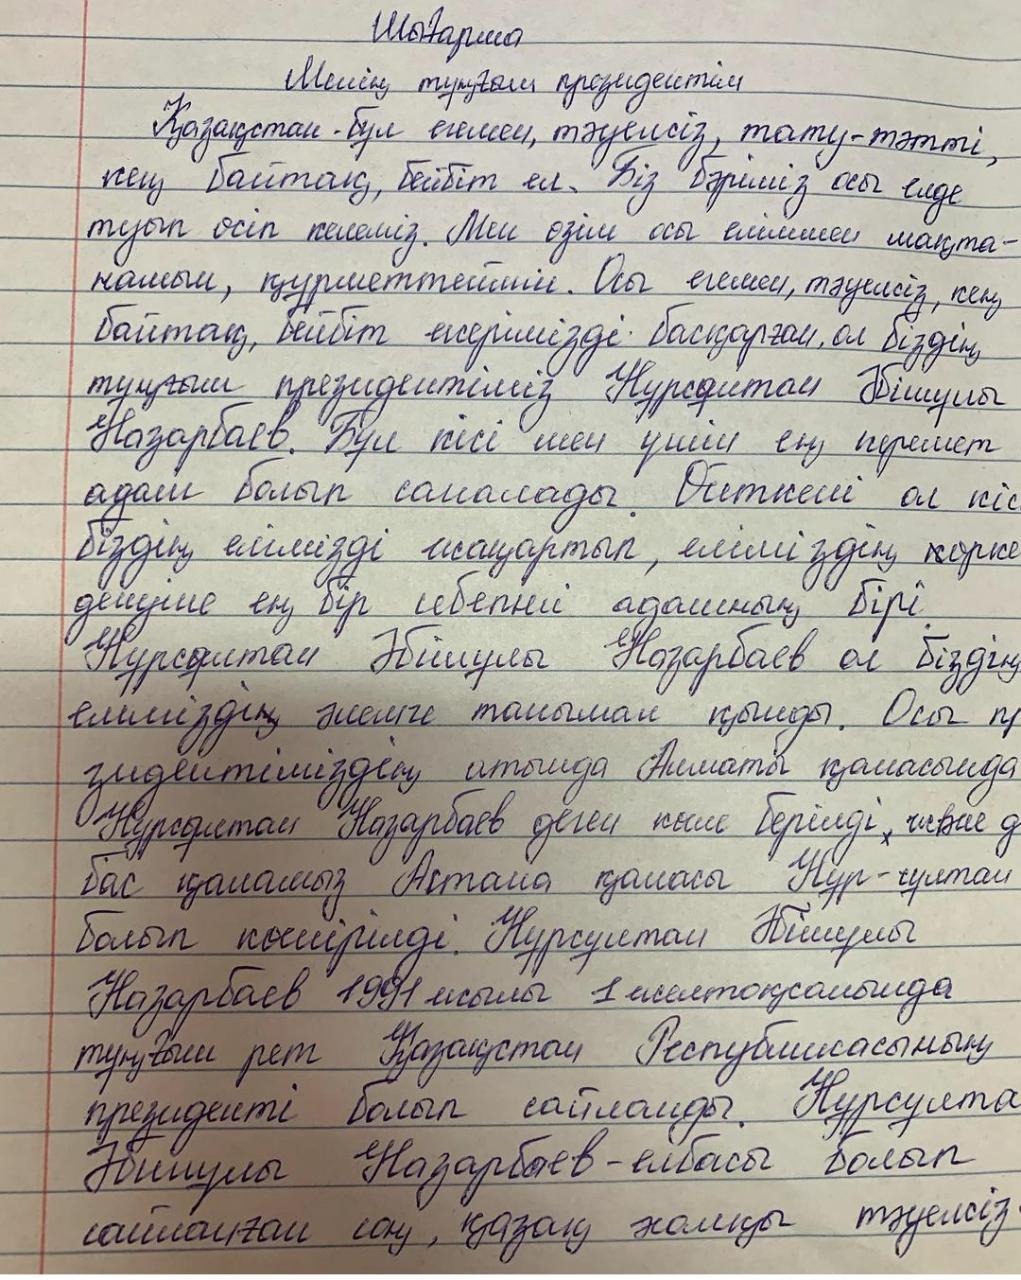 Шығарма
Менің тұңғыш президентім
Қазақстан-бұл егемен, тәуелсіз, тату-тәтті,
кең байтақ, бейбіт ел. Біз бәріміз осы елде
туып өсіп келеміз. Мен өзім осы еліммен мақта-
намын, құрметтеймін. Осы егемен, тәуелсіз, кең
байтақ, бейбіт жерімізді басқарған, ол біздің
тұңғыш президентіміз Нұрсұлтан Әбішұлы
Назарбаев. Бұл кісі мен үшін ең керемет
адам болып саналады. Өйткені ол кіс
біздің елімізді жаңартып, еліміздің көрке
деуіне ең бір себепкі адамның бірі.
Нұрсұлтан Әбішұлы Назарбаев ол біздің
еліміздің әлемге танымал қылды. Осы пр
зидентіміздің атында Алматы қаласында
Нұрсұлтан Назарбаев деген көше берілді, және д
бас қаламыз Астана қаласы Нұр-сұлтан
болып көшірілді. Нұрсұлтан Әбішұлы
Назарбаев 1991 жылы 1 желтоқсанында
тұңғыш рет Қазақстан Республикасының
президенті болып сайланды. Нұрсұлта
Әбішұлы Назарбаев-елбасы болып
сайланған соң, қазақ халқы тәуелсіз-